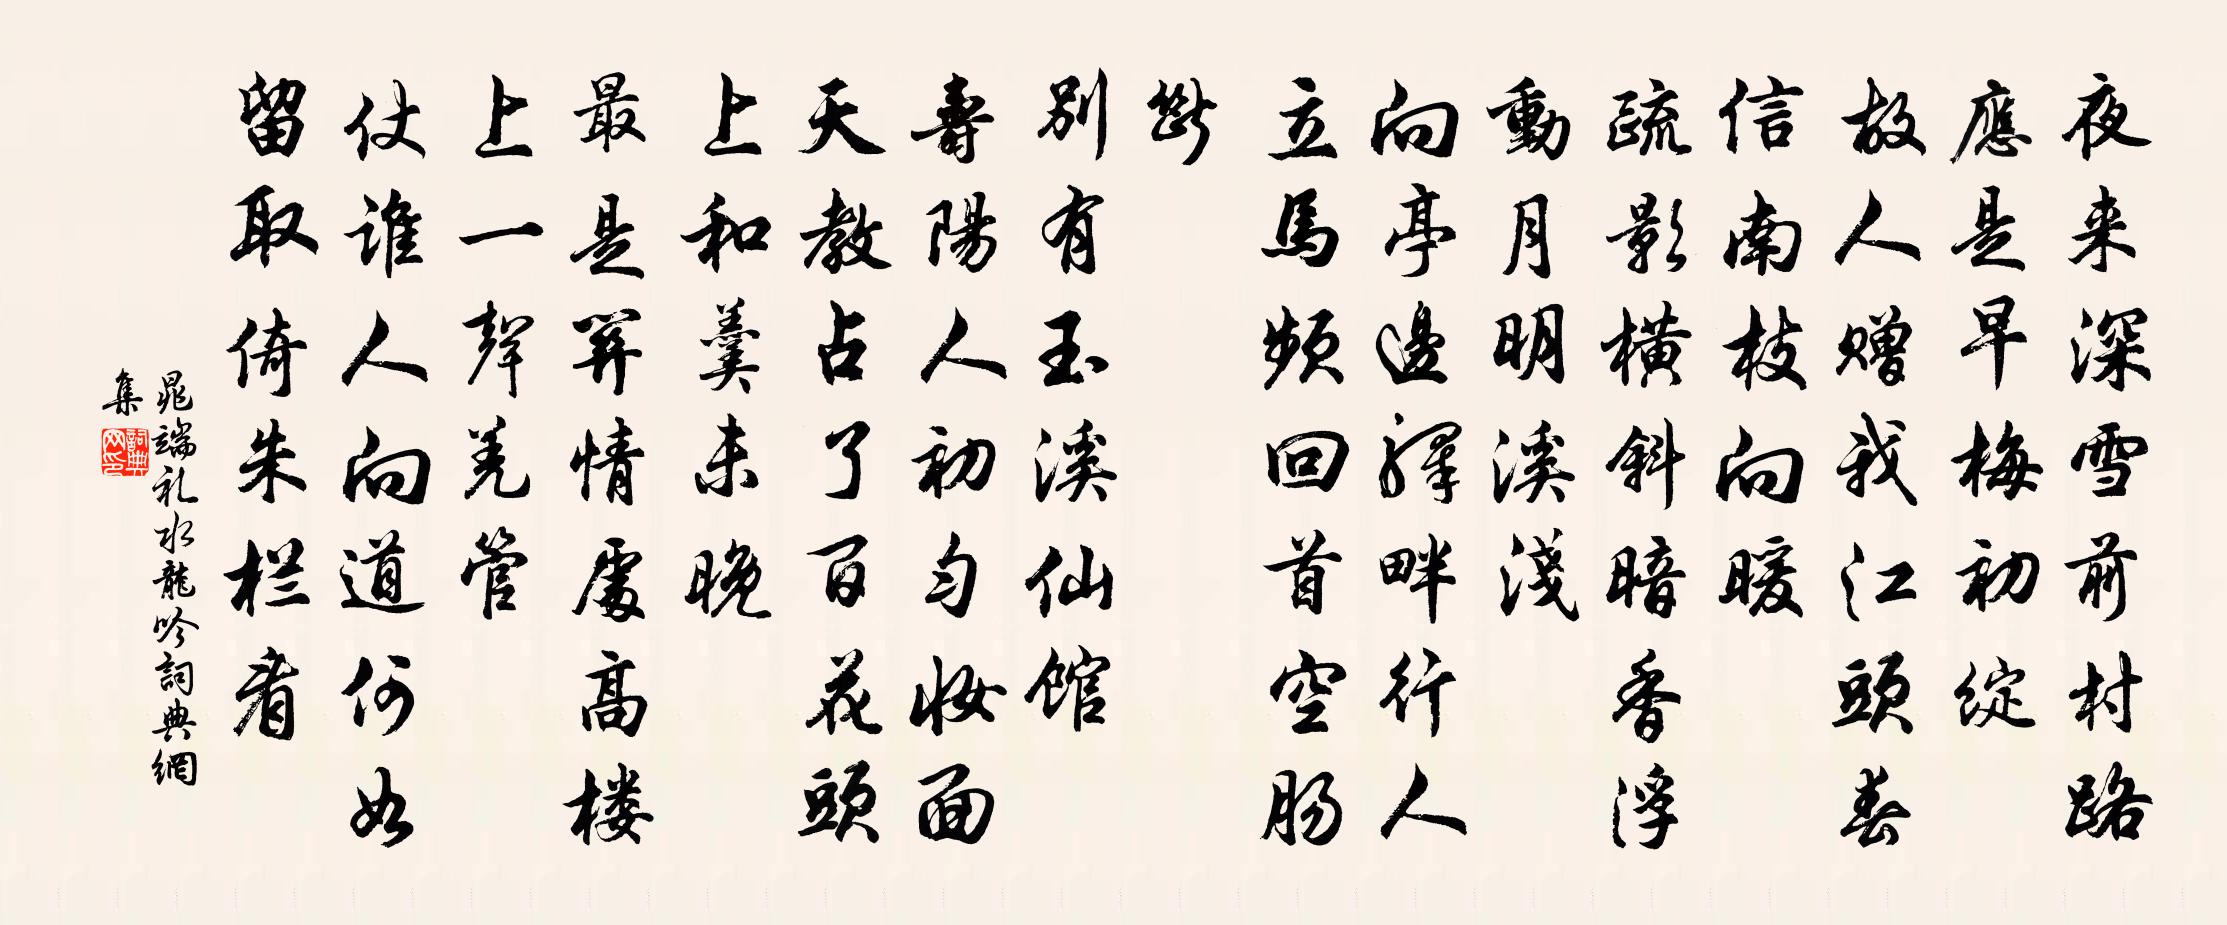 夜来深雪前村路
應是早梅初綻
故人贈我江頭春
信南枝向暖
疏影橫斜暗香浮
動月明溪淺
向亭邊驛畔行人
立馬頻回首空腸
斷
別有玉溪仙館
壽陽人初勻妝面
天教占了百花頭
上和羹未晚
最是關情處高樓
上一聲羌管
仗誰人向道何如
留取倚朱栏看
晁端礼水龍吟詞典網
集
詞典网印